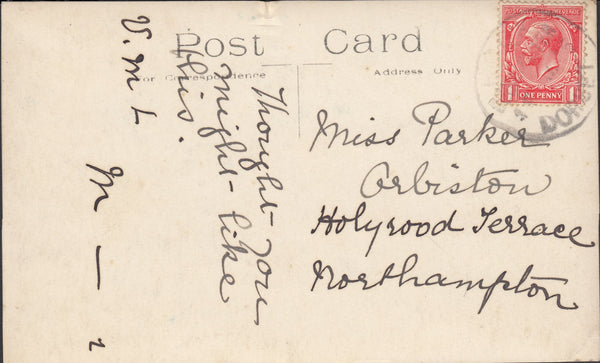 Post Card
For Correspondence
Address Only
POSTAGE REVENUE
ONE PENNY
DORSET
Thought you
might like
this.
V. M L
M — 2
Miss Parker
Orbiston
Holyrood Terrace
Northampton